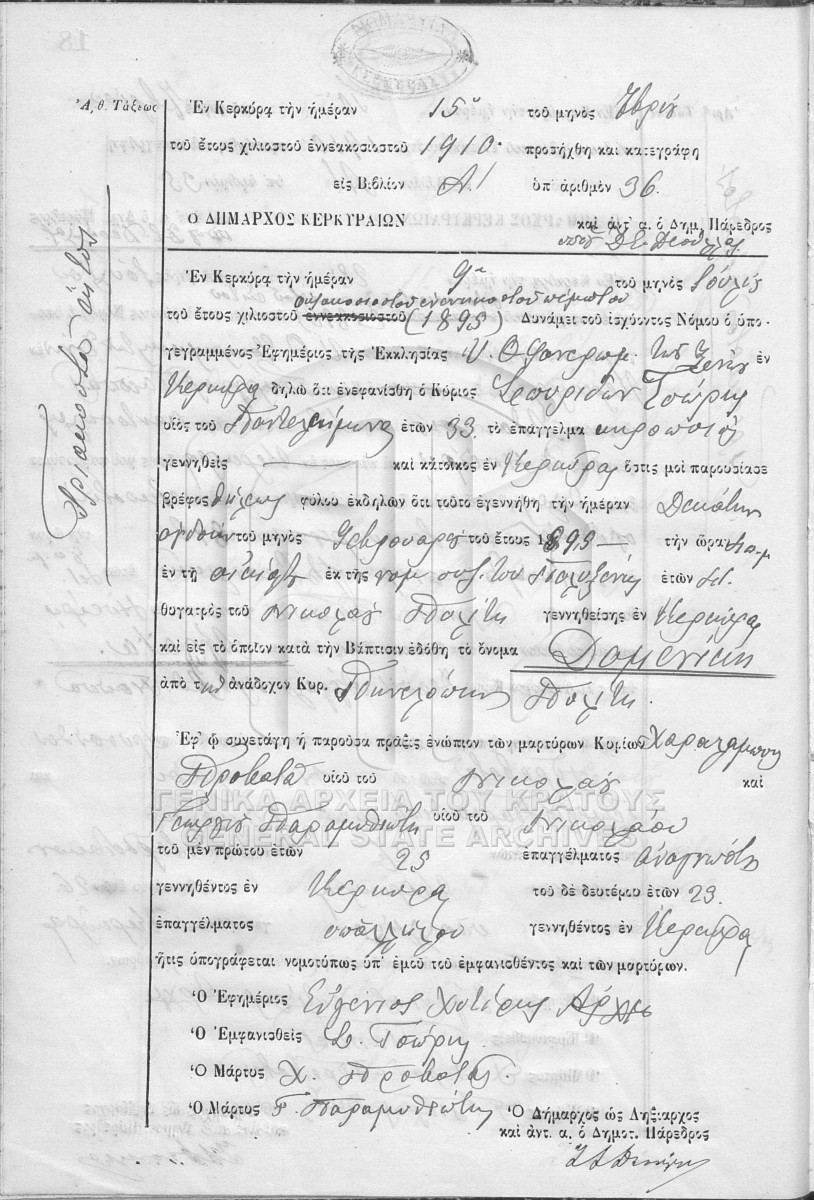 18
Ἀ, θ. Τάξεως
Τριακοστὸν ἕκτον
Ἐν Κερκύρᾳ τὴν ἡμέραν 15ῃ τοῦ μηνὸς
τοῦ ἔτους χιλιοστοῦ ἐννεακοσιοστοῦ 1910 προσήχθη καὶ κατεγράφη
εἰς Βιβλίον Α' ὑπ' ἀριθμὸν 36.
Ὁ ΔΗΜΑΡΧΟΣ ΚΕΡΚΥΡΑΙΩΝ καὶ ἀντ' α. ὁ Δημ, Πάρεδρος
Ἐν Κερκύρᾳ τὴν ἡμέραν 9ῃ τοῦ μηνὸς Ἰουλίου
ὀκτακοσιοστοῦ ἐνενηκοστοῦ πέμπτου
τοῦ ἔτους χιλιοστοῦ ἐννεακοσιοστοῦ (1895) Δυνάμει τοῦ ἰσχύοντος Νόμου ὁ ὑπο-
γεγραμμένος Ἐφημέριος τῆς Ἐκκλησίας Υ. Θ. Φανερωμ. τῶν Ξένων ἐν
Κερκύρᾳ δηλῶ ὅτι ἐνεφανίσθη ὁ Κύριος Σπυρίδων Τσώρης
υἱὸς τοῦ Παντελεήμονος ἐτῶν 33. τὸ ἐπάγγελμα κηροποιὸς
γεννηθεὶς — καὶ κάτοικος ἐν Κερκύρᾳ ὅστις μοὶ παρουσίασε
βρέφος θήλεως φύλου ἐκδηλῶν ὅτι τοῦτο ἐγεννήθη τὴν ἡμέραν Δεκάτην
ὀγδόην τοῦ μηνὸς Φεβρουαρίου τοῦ ἔτους 1895 — τὴν ὥραν
ἐν τῇ οἰκίᾳ ἐκ τῆς νομ. συζ. του Πολυξένης ἐτῶν
θυγατρὸς τοῦ Νικολάου Πολίτη γεννηθείσης ἐν Κερκύρᾳ
καὶ εἰς τὸ ὁποῖον κατὰ τὴν Βάπτισιν ἐδόθη τὸ ὄνομα Δομενίκη
ἀπὸ τὴν ἀνάδοχον Κυρ. Πηνελόπην Πολίτη.
Ἐφ' ᾧ συνετάγη ἡ παροῦσα πρᾶξις ἐνώπιον τῶν μαρτύρων Κυρίων Χαραλάμπους
Προβατᾶ υἱοῦ τοῦ Νικολάου καὶ
ΓΕΝΙΚΑ ΑΡΧΕΙΑ ΤΟΥ ΚΡΑΤΟΥΣ
Γεωργίου Παραμυθιώτη υἱοῦ τοῦ Νικολάου
GENERAL STATE ARCHIVES
τοῦ μὲν πρώτου ἐτῶν 25 ἐπαγγέλματος ἀναγνώστη
γεννηθέντος ἐν Κερκύρᾳ τοῦ δὲ δευτέρου ἐτῶν 23.
ἐπαγγέλματος ὑπαλλήλου γεννηθέντος ἐν Κερκύρᾳ
ἥτις ὑπογράφεται νομοτύπως ὑπ' ἐμοῦ τοῦ ἐμφανισθέντος καὶ τῶν μαρτύρων.
Ὁ Ἐφημέριος Εὐγένιος Χυτήρης
Ὁ Ἐμφανισθεὶς Σ. Τσώρης
Ὁ Μάρτυς Χ. Προβατᾶς
Ὁ Μάρτυς Γ. Παραμυθιώτης
Ὁ Δήμαρχος ὡς Ληξίαρχος
καὶ ἀντ. α. ὁ Δημοτ. Πάρεδρος